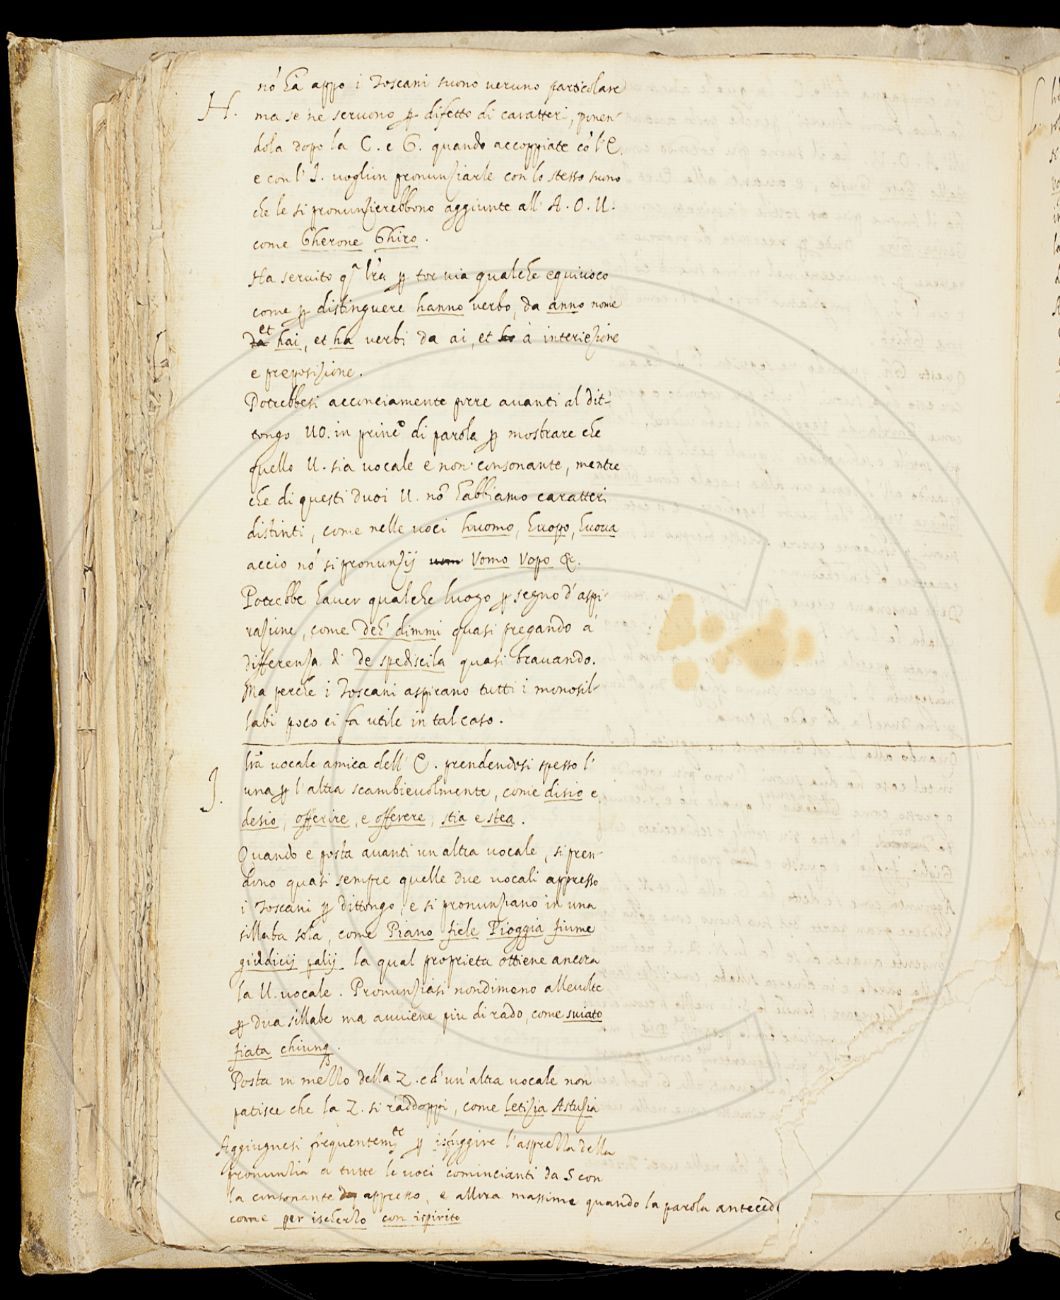 H. nō ha appo i Toscani suono veruno particolare
ma se ne servono ꝑ difetto di caratteri, ponen-
dola dopo la C. e G. quando accoppiate cō l' E.
e con l' I. voglion pronunziarle con lo stesso suono
che le si pronunzierebbono aggiunte all' A. O. U.
come Gherone Ghiro.
Ha servito qª lrã ꝑ tor via qualche equivoco
come ꝑ distinguere hanno verbo, da anno nome
et hai, et ha verbi da ai, et à interiezione
e preposizione.
Potrebbesi acconciamente porre avanti al dit-
tongo UO. in princº di parola ꝑ mostrare che
quello U. sia vocale e non consonante, mentre
che di questi duoi U. nō habbiamo caratteri
distinti, come nelle voci huomo, huopo, huova
accio nō si pronunzij Vomo Vopo &.
Potrebbe haver qualche luogo ꝑ segno d'aspi-
razione, come deh dimmi quasi pregando a
differenza di de spediscila quasi bravando.
Ma perche i Toscani aspirano tutti i monosil-
labi poco ci fa utile in tal caso.
I. lrã vocale amica dell' E. prendendosi spesso l'
una ꝑ l'altra scambievolmente, come disio e
desio, offerire, e offerere, stia e stea.
Quando e posta avanti un altra vocale, si pren-
dono quasi sempre quelle due vocali appresso
i Toscani ꝑ dittongo, e si pronunziano in una
sillaba sola, come Piano fiele Pioggia fiume
giudicij palij la qual proprieta ottiene ancora
la U. vocale. Pronunziasi nondimeno allevolte
ꝑ dua sillabe ma avviene piu di rado, come sviato
fiata chiunq.
Posta in mezzo della Z. e d'un'altra vocale non
patisce che la Z. si raddoppi, come letizia Astuzia
Aggiugnesi frequentemte ꝑ isfuggire l'asprezza della
pronunzia a tutte le voci comincianti da S con
la consonante appresso, e allora massime quando la parola anteced
come per ischerzo con ispirito